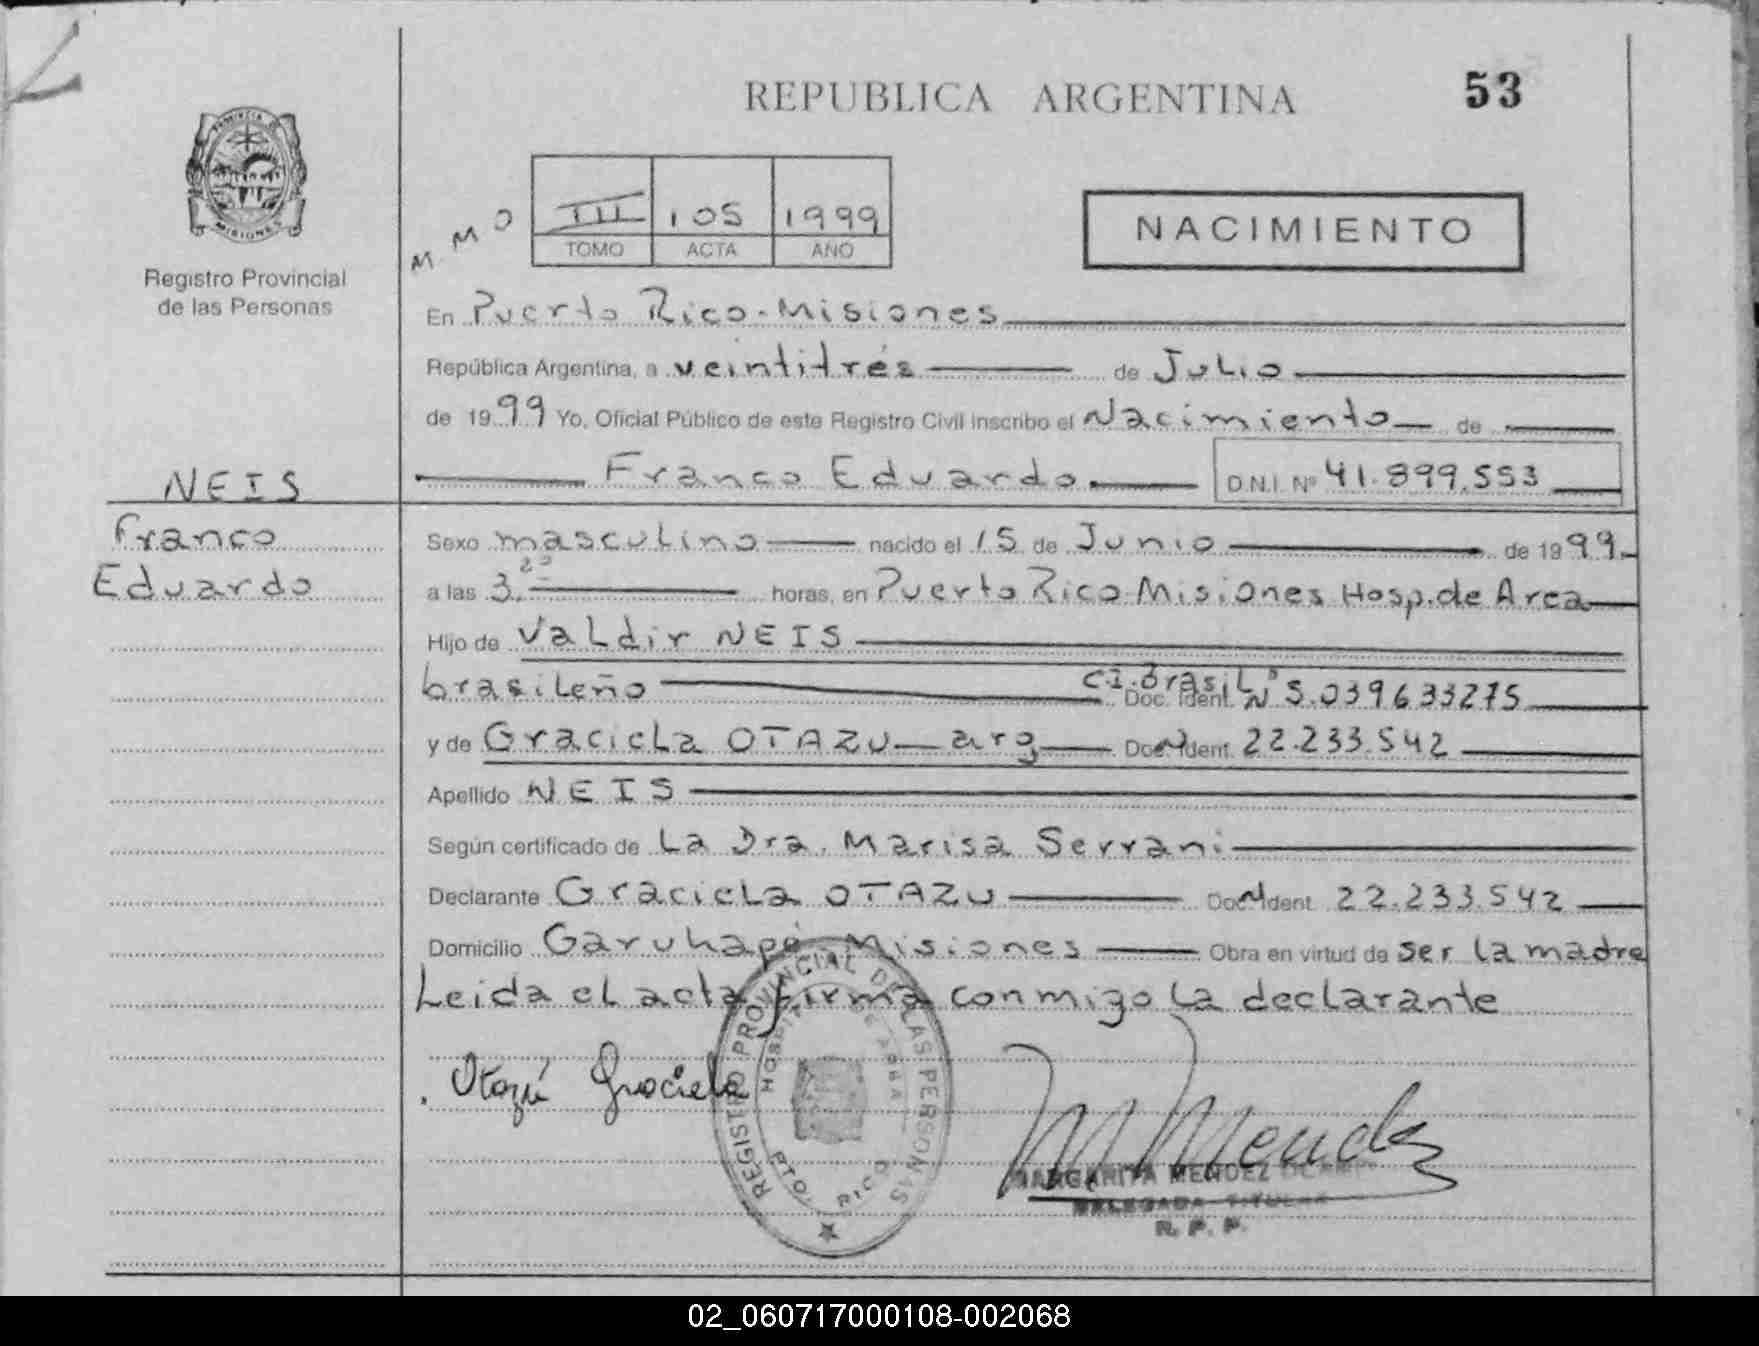 REPUBLICA ARGENTINA
53
PROVINCIA DE
MISIONES
Registro Provincial
de las Personas
M M O
III 105 1999
TOMO ACTA AÑO
NACIMIENTO
En Puerto Rico-Misiones
República Argentina, a veintitrés de Julio
de 1999 Yo, Oficial Público de este Registro Civil inscribo el Nacimiento de
Franco Eduardo D.N.I. Nº 41.899.553
NEIS
Franco
Eduardo
Sexo masculino nacido el 15 de Junio de 1999
a las 3.20 horas, en Puerto Rico-Misiones Hosp. de Area
Hijo de Valdir NEIS
brasileño C.I. Brasil Doc. Ident. Nº 5.039633275
y de Graciela OTAZU arg Doc. Ident. N 22.233.542
Apellido NEIS
Según certificado de La Dra. Marisa Serrani
Declarante Graciela OTAZU Doc. Ident. N 22.233.542
Domicilio Garuhapé-Misiones Obra en virtud de ser la madre
Leida el acta firma conmigo la declarante
Otazú Graciela
REGISTRO PROVINCIAL DE LAS PERSONAS
HOSPITAL DE AREA
PTO. RICO
M Mendez
MARGARITA MENDEZ
DELEGADA TITULAR
R. P. P.
02_060717000108-002068